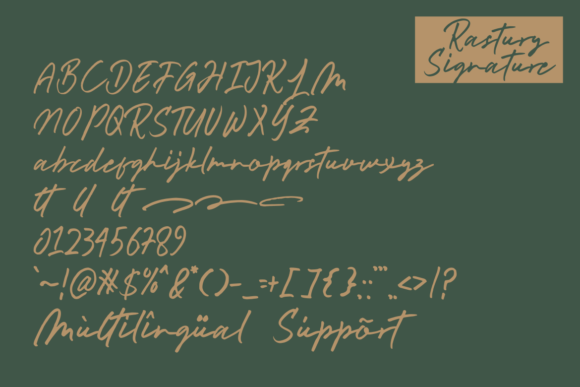 Rastury
Signature
ABCDEFGHIJKLM
NOPQRSTUVWXYZ
abcdefghijklmnopqrstuvwxyz
tt ll lt
0123456789
`~!@#$%^&*()-_=+[]{};:'",.<>/?
Mùltilîngüal Sùppõrt